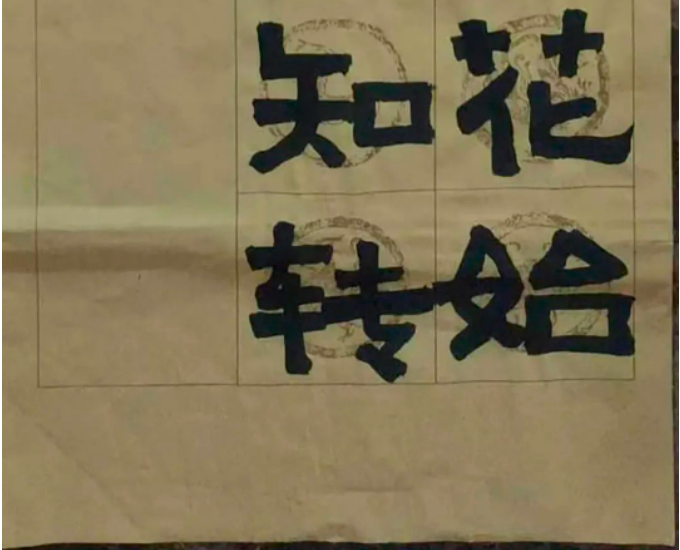 花始
知转